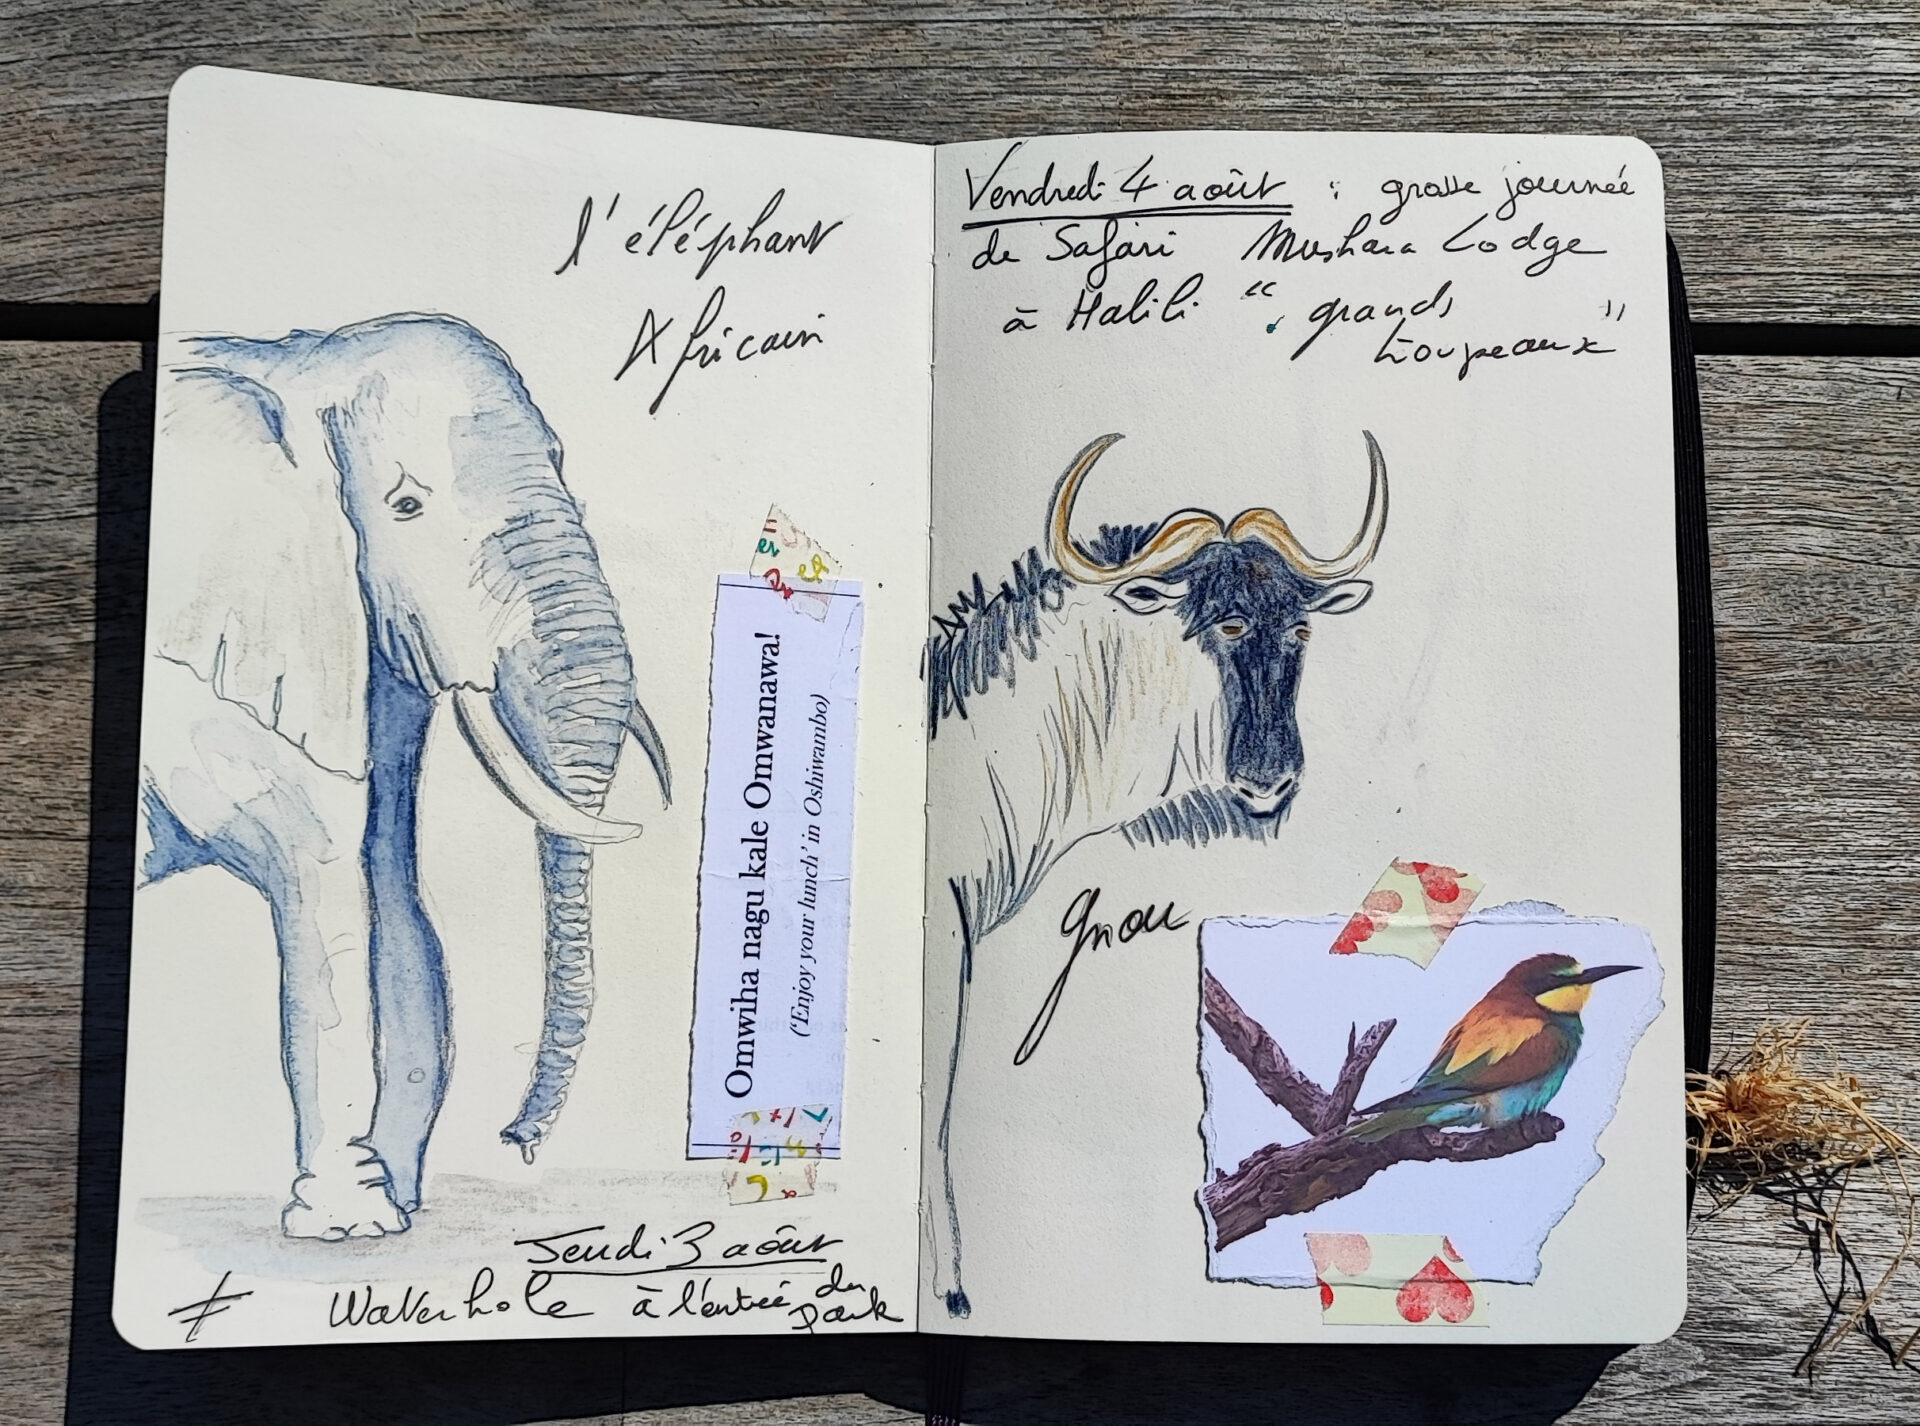 l'éléphant
Africain
Omwiha nagu kale Omwanawa!
('Enjoy your lunch' in Oshiwambo)
Jeudi 3 août
Waterhole à l'entrée du
park
Vendredi 4 août : grosse journée
de Safari Mushara Lodge
à Halili " grands
troupeaux "
gnou